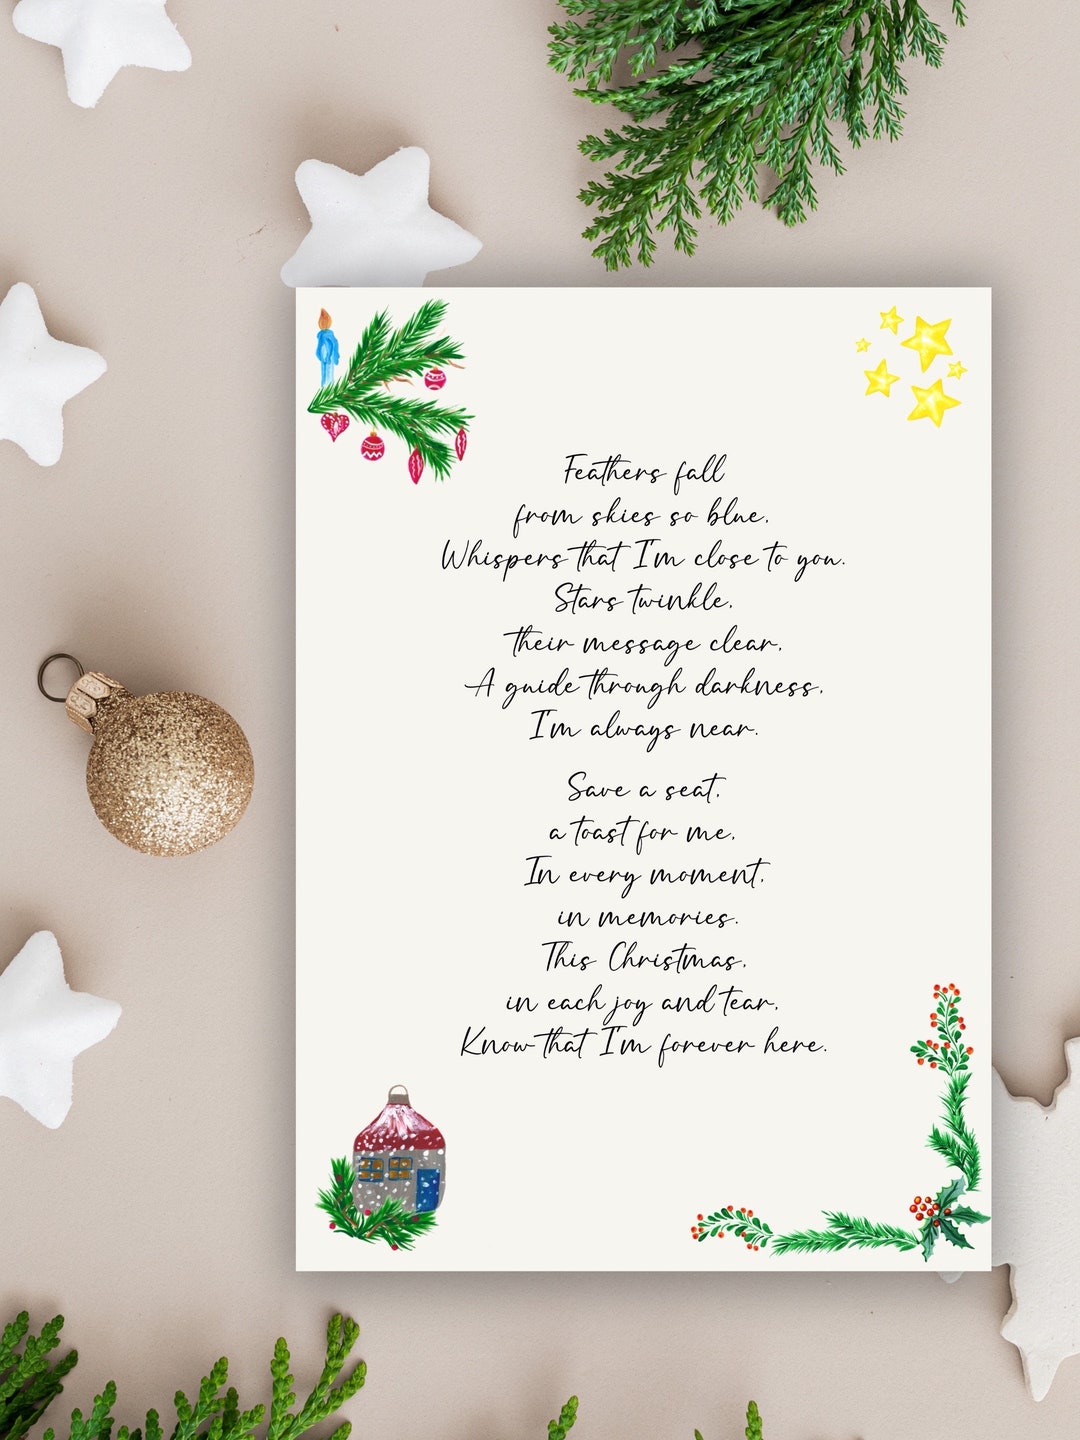 Feathers fall
from skies so blue,
Whispers that I'm close to you.
Stars twinkle,
their message clear,
A guide through darkness,
I'm always near.
Save a seat,
a toast for me,
In every moment,
in memories.
This Christmas,
in each joy and tear,
Know that I'm forever here.